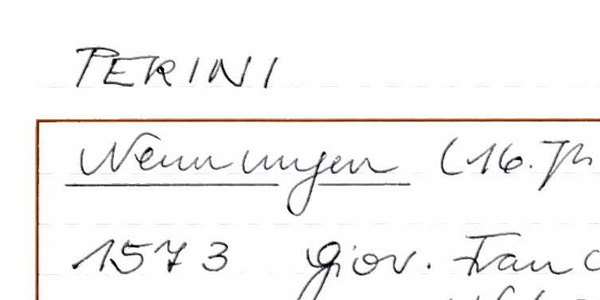 PERINI
Nennungen (16. Jh
1573 Giov. Fran